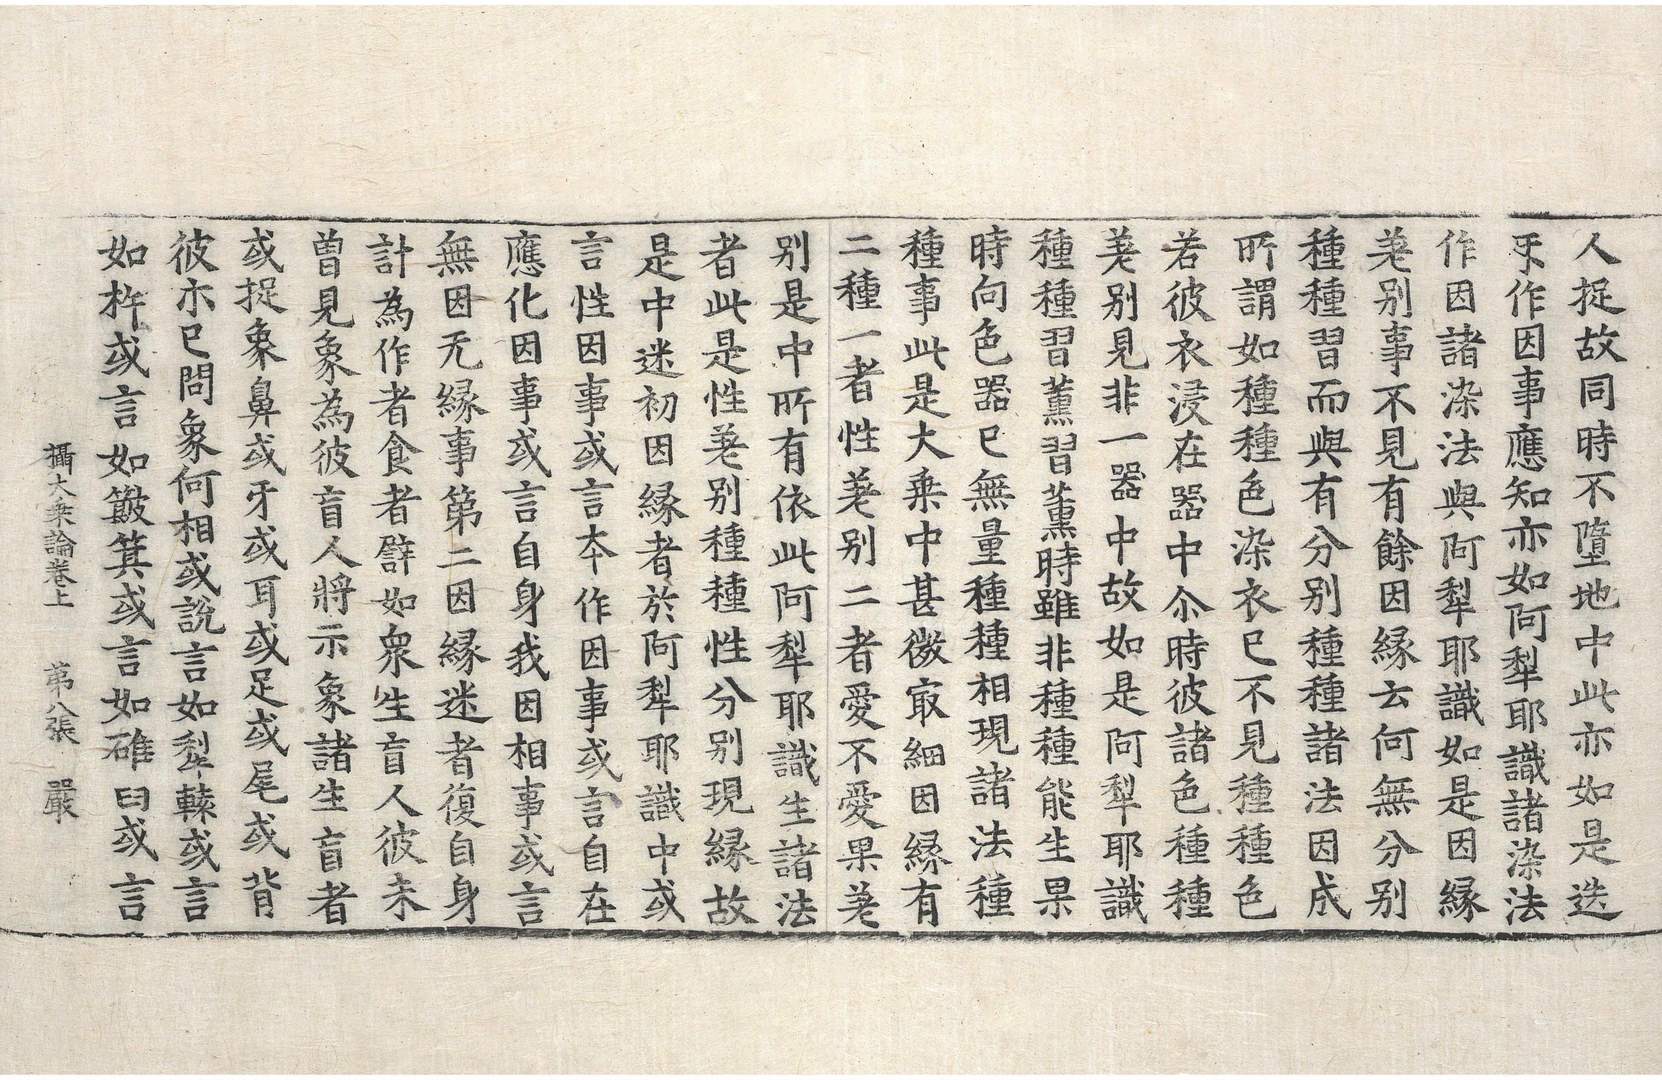 人捉故同時不墮地中此亦如是迭
㸦作因事應知亦如阿犁耶識諸染法
作因諸染法與阿犁耶識如是因縁
差别事不見有餘因縁云何無分别
種種習而與有分别種種諸法因成
所謂如種種色染衣已不見種種色
若彼衣浸在器中尒時彼諸色種種
差别見非一器中故如是阿犁耶識
種種習薰習薰時雖非種種能生果
時向色器已無量種種相現諸法種
種事此是大乗中甚微㝡細因縁有
二種一者性差别二者愛不愛果差
别是中所有依此阿犁耶識生諸法
者此是性差别種種性分别現縁故
是中迷初因縁者於阿犁耶識中或
言性因事或言夲作因事或言自在
應化因事或言自身我因相事或言
無因无縁事第二因縁迷者復自身
計為作者食者譬如衆生盲人彼未
曾見象為彼盲人將示象諸生盲者
或捉象鼻或牙或耳或足或尾或背
彼亦已問象何相或說言如犁轅或言
如杵或言如簸箕或言如碓臼或言
攝大乗論卷上 第八張 嚴